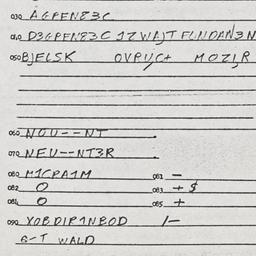 030 AGPFNE83C
040 D3GPFN83C 1Z WAJT FLNDAN3N
050 BJELSK OVPUC+ MOZIR
060 NOU--NT .
070 NEU--NT3R .
080 M1CPA1M 081 -
082 O 083 + $
084 O 085 +
090 XOBDIP1NBOD 1-
G-T WALD